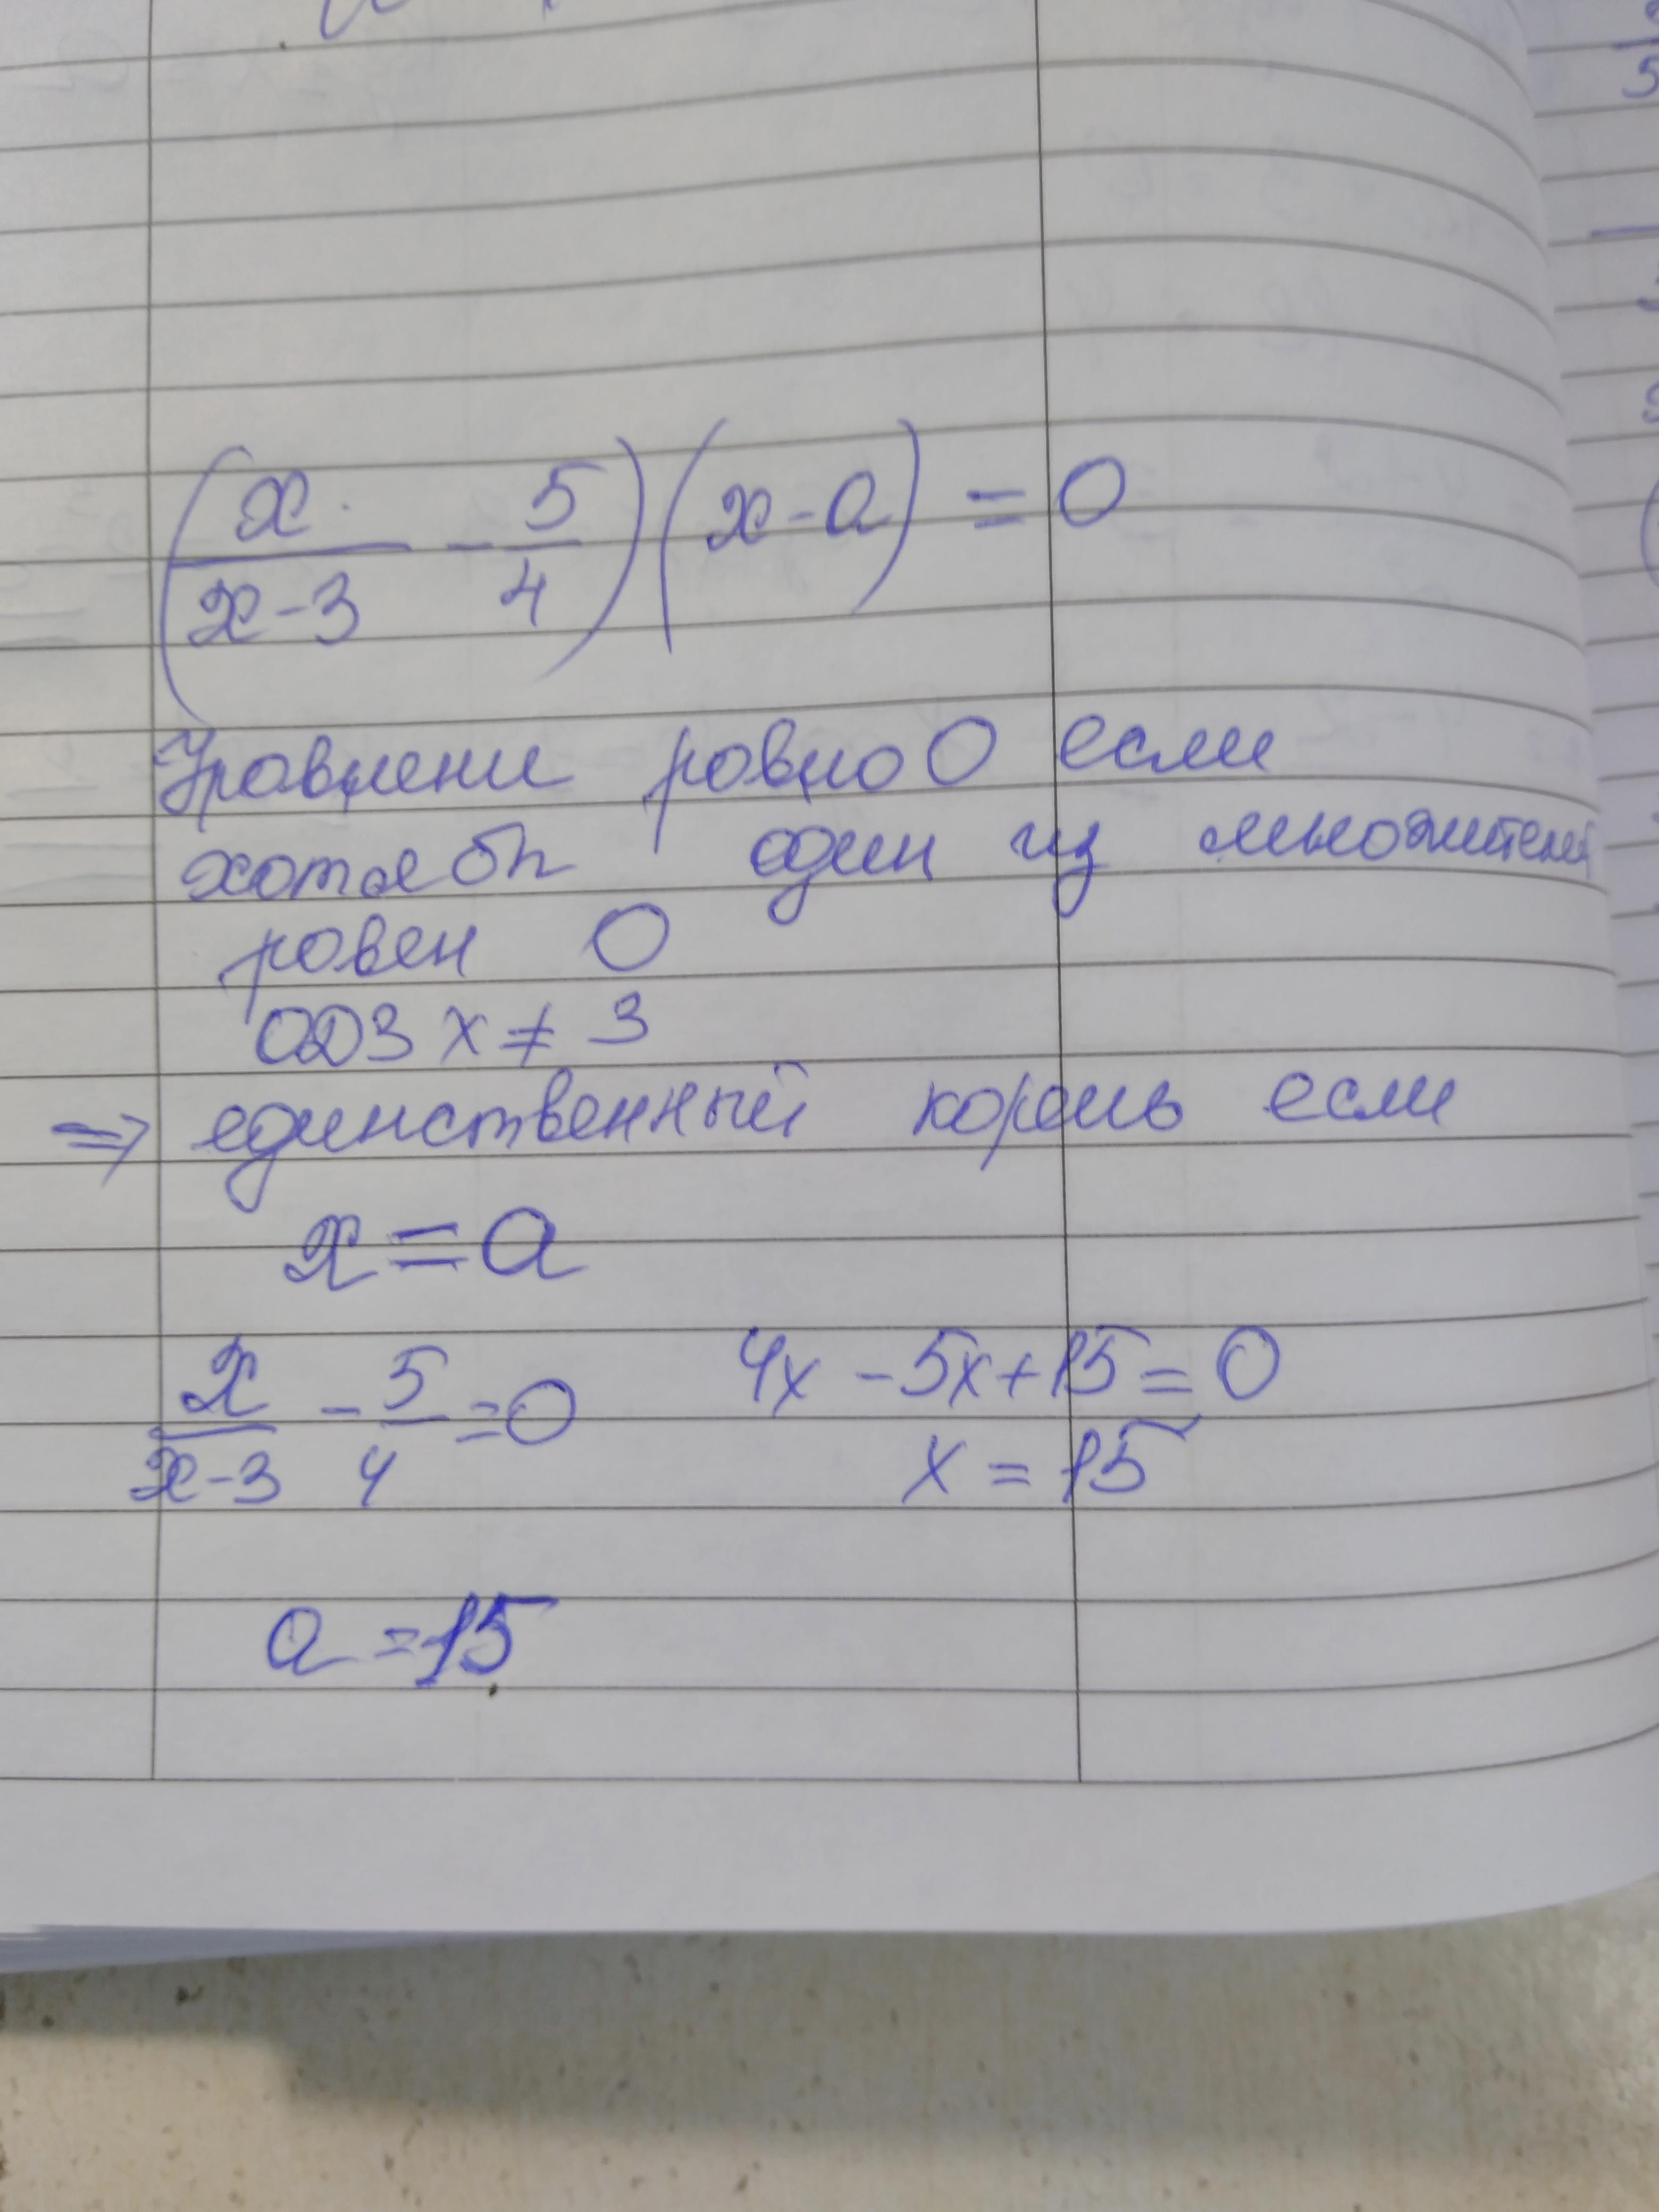 (x/(x-3) - 5/4)(x-a) = 0
Уравнени равно 0 если
хотя бы один из множителей
равен 0
ОДЗ x ≠ 3
⇒ единственный корень если
x = a
x/(x-3) - 5/4 = 0 4x - 5x + 15 = 0
x = 15
a = 15